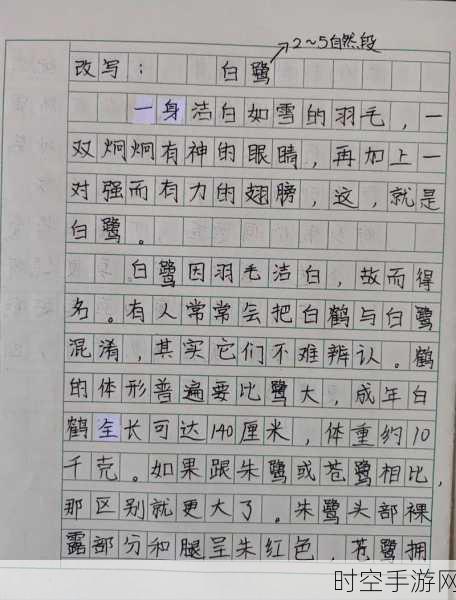 →2~5自然段
改写： 白鹭
一身洁白如雪的羽毛，一
双炯炯有神的眼睛，再加上一
对强而有力的翅膀，这，就是
白鹭。
白鹭因羽毛洁白，故而得
名。有人常常会把白鹤与白鹭
混淆，其实它们不难辨认。鹤
的体形普遍要比鹭大，成年白
鹤全长可达140厘米，体重约10
千克。如果跟朱鹭或苍鹭相比，
那区别就更大了。朱鹭头部裸
露部分和腿呈朱红色，苍鹭拥
时空手游网